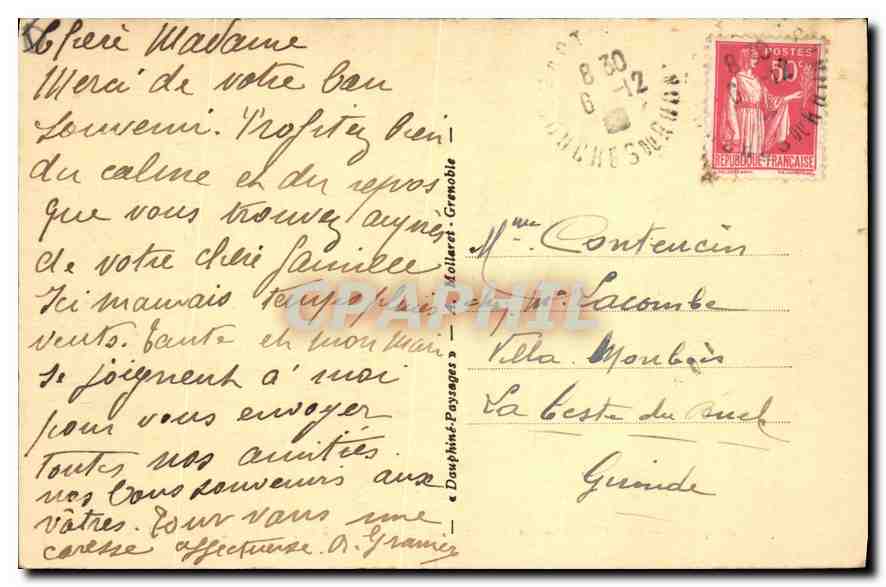 Chère Madame
Merci de votre bon
souvenir. Profitez bien
du calme et du repos
que vous trouvez auprès
de votre chère famille
Ici mauvais temps pluie
vents. Tante et mon mari
se joignent à moi
pour vous envoyer
toutes nos amitiés.
nos bons souvenirs aux
vôtres. Pour vous une
caresse affectueuse. A. Granier
« Dauphiné-Paysages » — A. Mollaret - Grenoble
8 30
6 -12
BOUCHES DU RHONE
POSTES
50c
REPUBLIQUE-FRANÇAISE
Mme Contencin
chez Mr Lacombe
Villa Monbois
La Teste du Buch
Gironde
CPAPHIL